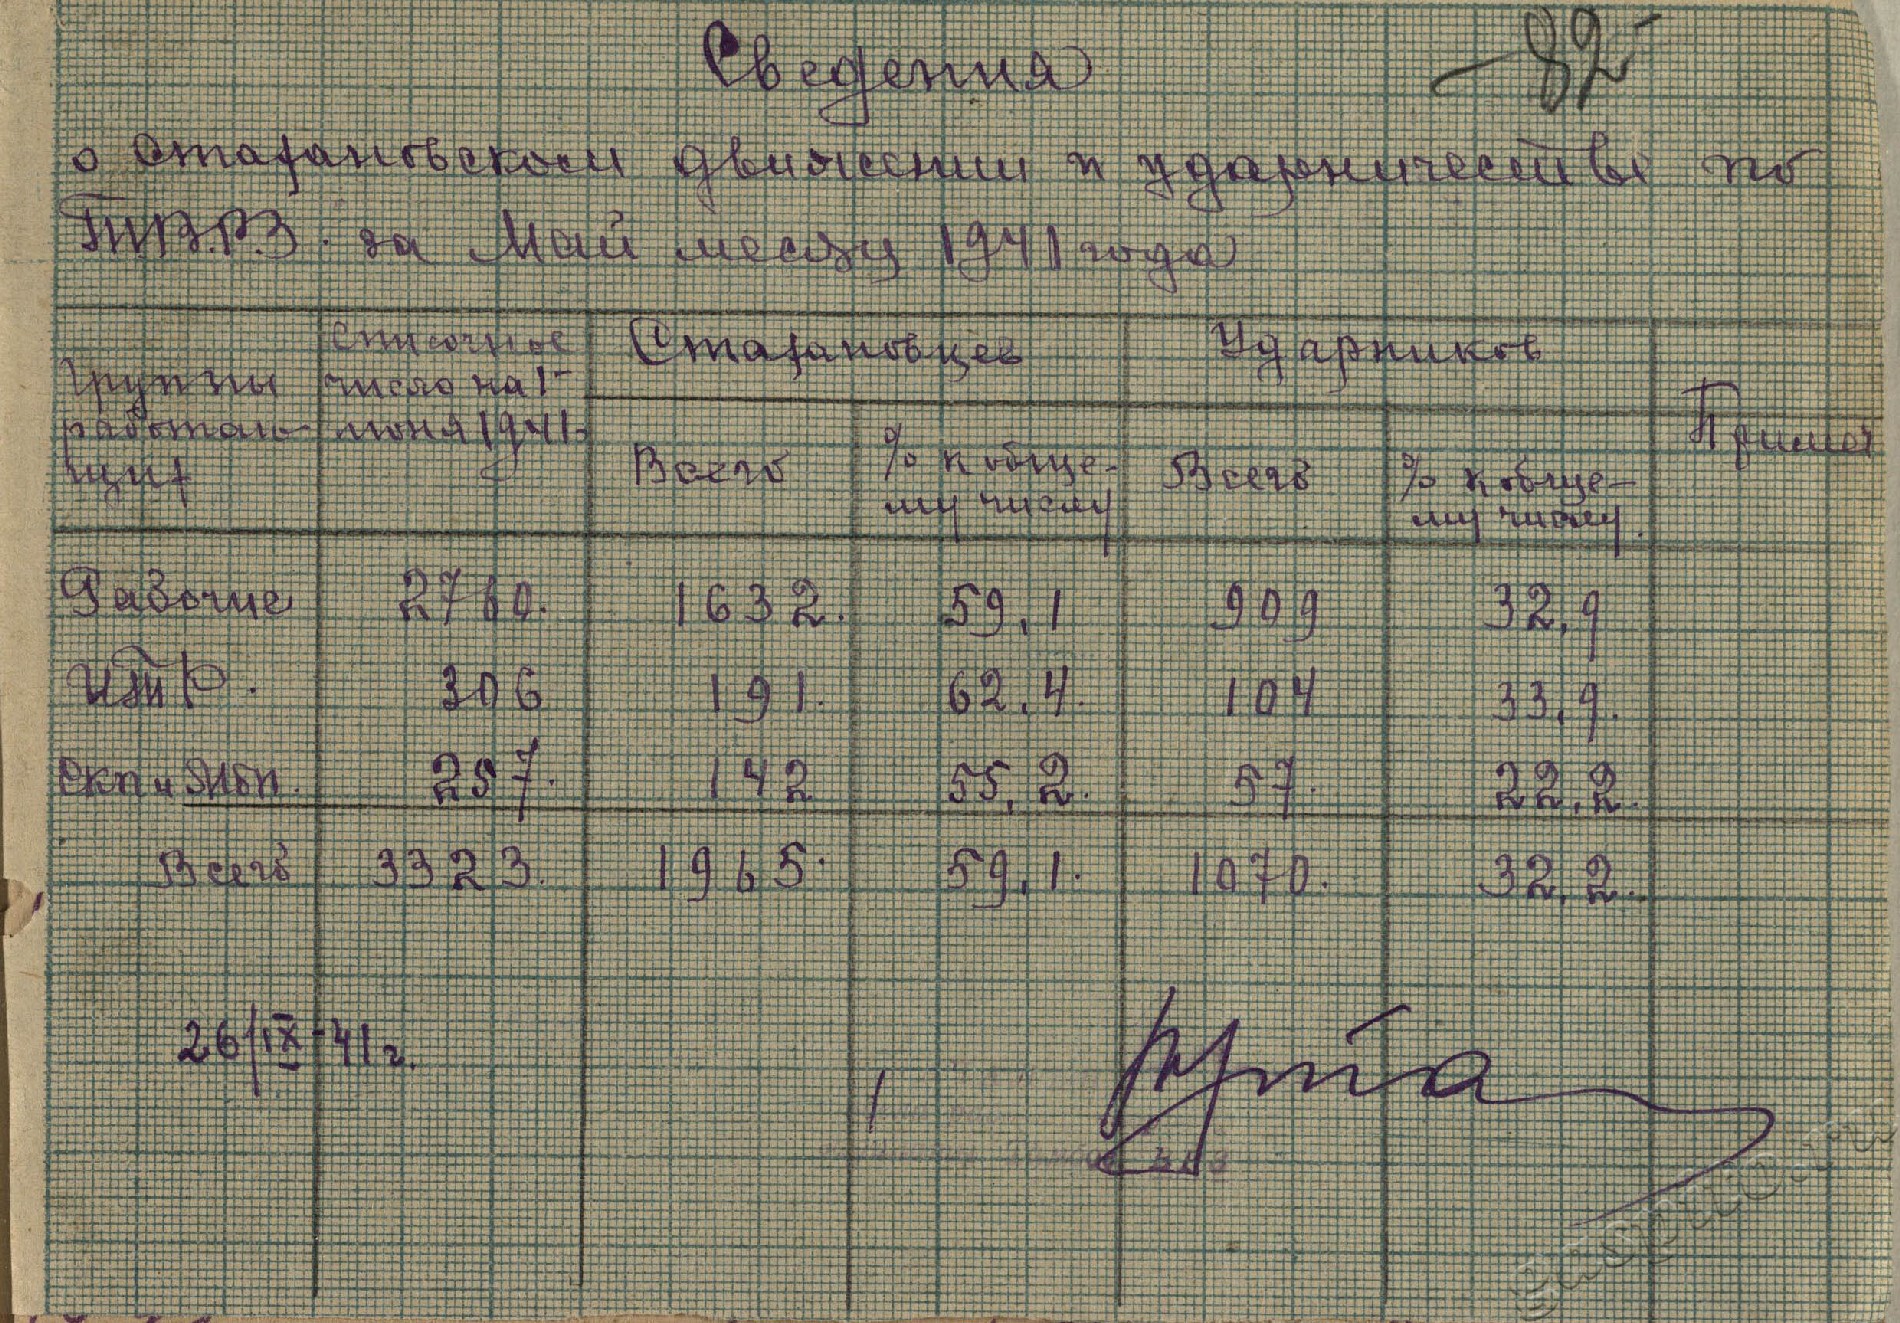 82
Сведения
о стахановском движении и ударничестве по
ТПВРЗ. за Май месяц 1941 года
Группы работаю-щих | Списочное число на 1-июня 1941. | Стахановцев | Ударников | Примеч
Всего | % к обще-му числу | Всего | % к обще-му числу.
Рабочие 2760. 1632. 59,1 909 32,9
ИТР. 306 191. 62,4. 104 33,9.
Скп и МОП. 257. 142 55,2. 57. 22,2.
Всего 3323. 1965. 59,1. 1070. 32,2.
26/IX-41г.